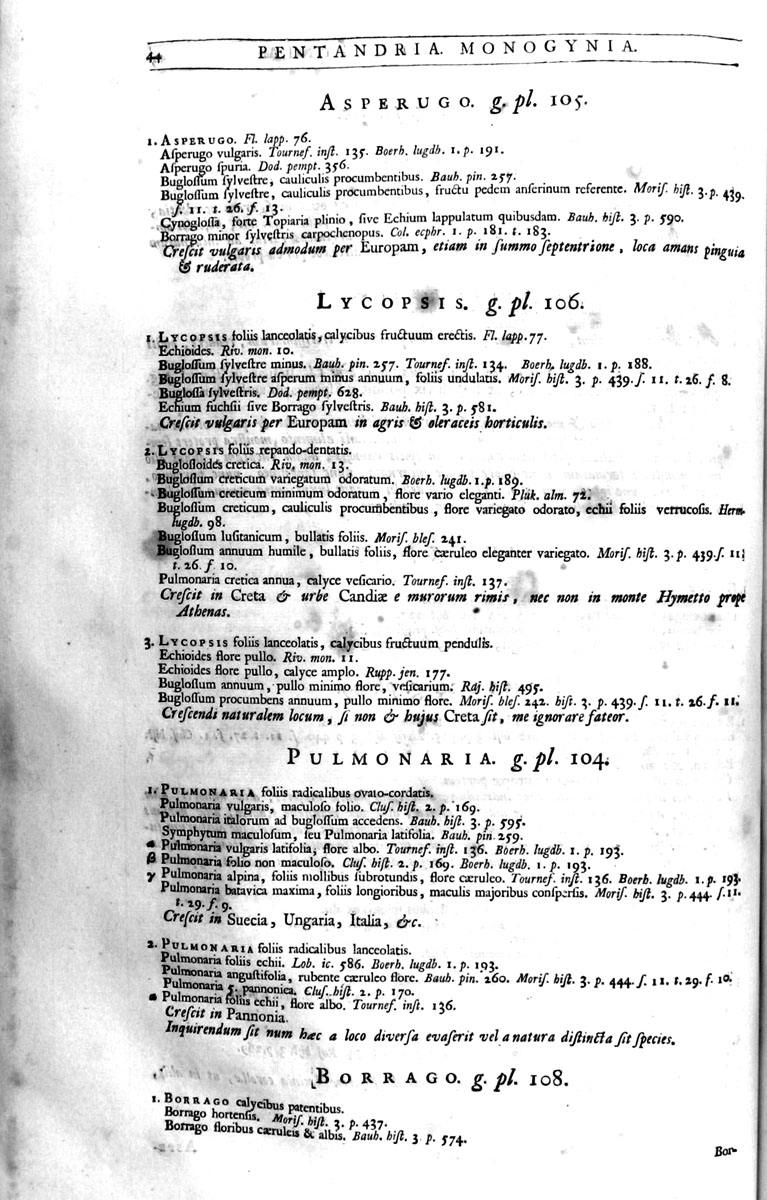 44 PENTANDRIA. MONOGYNIA.
ASPERUGO. g. pl. 105.
1. ASPERUGO. Fl. lapp. 76.
Aſperugo vulgaris. Tournef. inſt. 135. Boerh. lugdb. 1. p. 191.
Aſperugo ſpuria. Dod. pempt. 356.
Bugloſſum ſylveſtre, cauliculis procumbentibus. Bauh. pin. 257.
Bugloſſum ſylveſtre, cauliculis procumbentibus, fructu pedem anſerinum referente. Moriſ. hiſt. 3. p. 439.
ſ. 11. t. 26. f. 13.
Cynogloſſa, forte Topiaria plinio, ſive Echium lappulatum quibusdam. Bauh. hiſt. 3. p. 590.
Borrago minor ſylveſtris carpochenopus. Col. ecphr. 1. p. 181. t. 183.
Creſcit vulgaris admodum per Europam, etiam in ſummo ſeptentrione, loca amans pinguia
& ruderata.
LYCOPSIS. g. pl. 106.
1. LYCOPSIS foliis lanceolatis, calycibus fructuum erectis. Fl. lapp. 77.
Echioides. Riv. mon. 10.
Bugloſſum ſylveſtre minus. Bauh. pin. 257. Tournef. inſt. 134. Boerh. lugdb. 1. p. 188.
Bugloſſum ſylveſtre aſperum minus annuum, foliis undulatis. Moriſ. hiſt. 3. p. 439. ſ. 11. t. 26. f. 8.
Bugloſſa ſylveſtris. Dod. pempt. 628.
Echium fuchſii ſive Borrago ſylveſtris. Bauh. hiſt. 3. p. 581.
Creſcit vulgaris per Europam in agris & oleraceis horticulis.
2. LYCOPSIS foliis repando-dentatis.
Bugloſſoides cretica. Riv. mon. 13.
Bugloſſum creticum variegatum odoratum. Boerh. lugdb. 1. p. 189.
Bugloſſum creticum minimum odoratum, flore vario eleganti. Pluk. alm. 72.
Bugloſſum creticum, cauliculis procumbentibus, flore variegato odorato, echii foliis verrucoſis. Herm.
lugdb. 98.
Bugloſſum luſitanicum, bullatis foliis. Moriſ. bleſ. 241.
Bugloſſum annuum humile, bullatis foliis, flore cæruleo eleganter variegato. Moriſ. hiſt. 3. p. 439. ſ. 11.
t. 26. f. 10.
Pulmonaria cretica annua, calyce veſicario. Tournef. inſt. 137.
Creſcit in Creta & urbe Candiæ e murorum rimis, nec non in monte Hymetto prope
Athenas.
3. LYCOPSIS foliis lanceolatis, calycibus fructuum pendulis.
Echioides flore pullo. Riv. mon. 11.
Echioides flore pullo, calyce amplo. Rupp. jen. 177.
Bugloſſum annuum, pullo minimo flore, veſicarium. Raj. hiſt. 495.
Bugloſſum procumbens annuum, pullo minimo flore. Moriſ. bleſ. 242. hiſt. 3. p. 439. ſ. 11. t. 26. f. 11.
Creſcendi naturalem locum, ſi non & hujus Creta ſit, me ignorare fateor.
PULMONARIA. g. pl. 104.
1. PULMONARIA foliis radicalibus ovato-cordatis.
Pulmonaria vulgaris, maculoſo folio. Cluſ. hiſt. 2. p. 169.
Pulmonaria italorum ad bugloſſum accedens. Bauh. hiſt. 3. p. 595.
Symphytum maculoſum, ſeu Pulmonaria latifolia. Bauh. pin. 259.
α Pulmonaria vulgaris latifolia, flore albo. Tournef. inſt. 136. Boerh. lugdb. 1. p. 193.
β Pulmonaria folio non maculoſo. Cluſ. hiſt. 2. p. 169. Boerh. lugdb. 1. p. 193.
γ Pulmonaria alpina, foliis mollibus ſubrotundis, flore cæruleo. Tournef. inſt. 136. Boerh. lugdb. 1. p. 193.
Pulmonaria batavica maxima, foliis longioribus, maculis majoribus conſperſis. Moriſ. hiſt. 3. p. 444. ſ. 11.
t. 29. f. 9.
Creſcit in Suecia, Ungaria, Italia, &c.
2. PULMONARIA foliis radicalibus lanceolatis.
Pulmonaria foliis echii. Lob. ic. 586. Boerh. lugdb. 1. p. 193.
Pulmonaria anguſtifolia, rubente cæruleo flore. Bauh. pin. 260. Moriſ. hiſt. 3. p. 444. ſ. 11. t. 29. f. 10.
Pulmonaria 5. pannonica. Cluſ. hiſt. 2. p. 170.
α Pulmonaria foliis echii, flore albo. Tournef. inſt. 136.
Creſcit in Pannonia.
Inquirendum ſit num hæc a loco diverſa evaſerit vel a natura diſtincta ſit ſpecies.
BORRAGO. g. pl. 108.
1. BORRAGO calycibus patentibus.
Borrago hortenſis. Moriſ. hiſt. 3. p. 437.
Borrago floribus cæruleis & albis. Bauh. hiſt. 3 p. 574.
Bor-